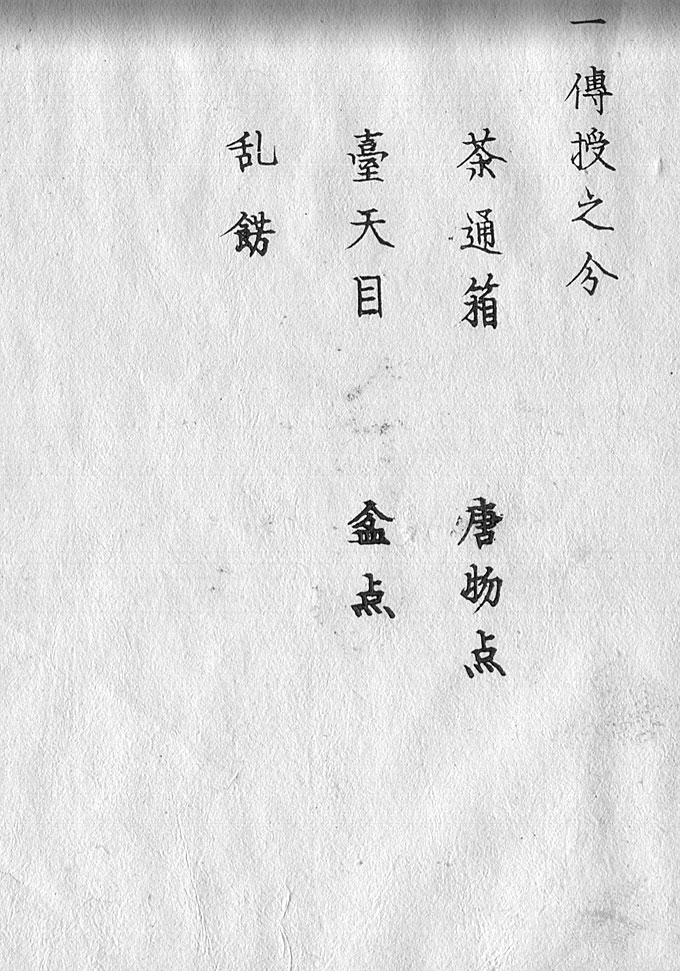 一傳授之分
茶通箱 唐物点
臺天目 盆点
乱餝